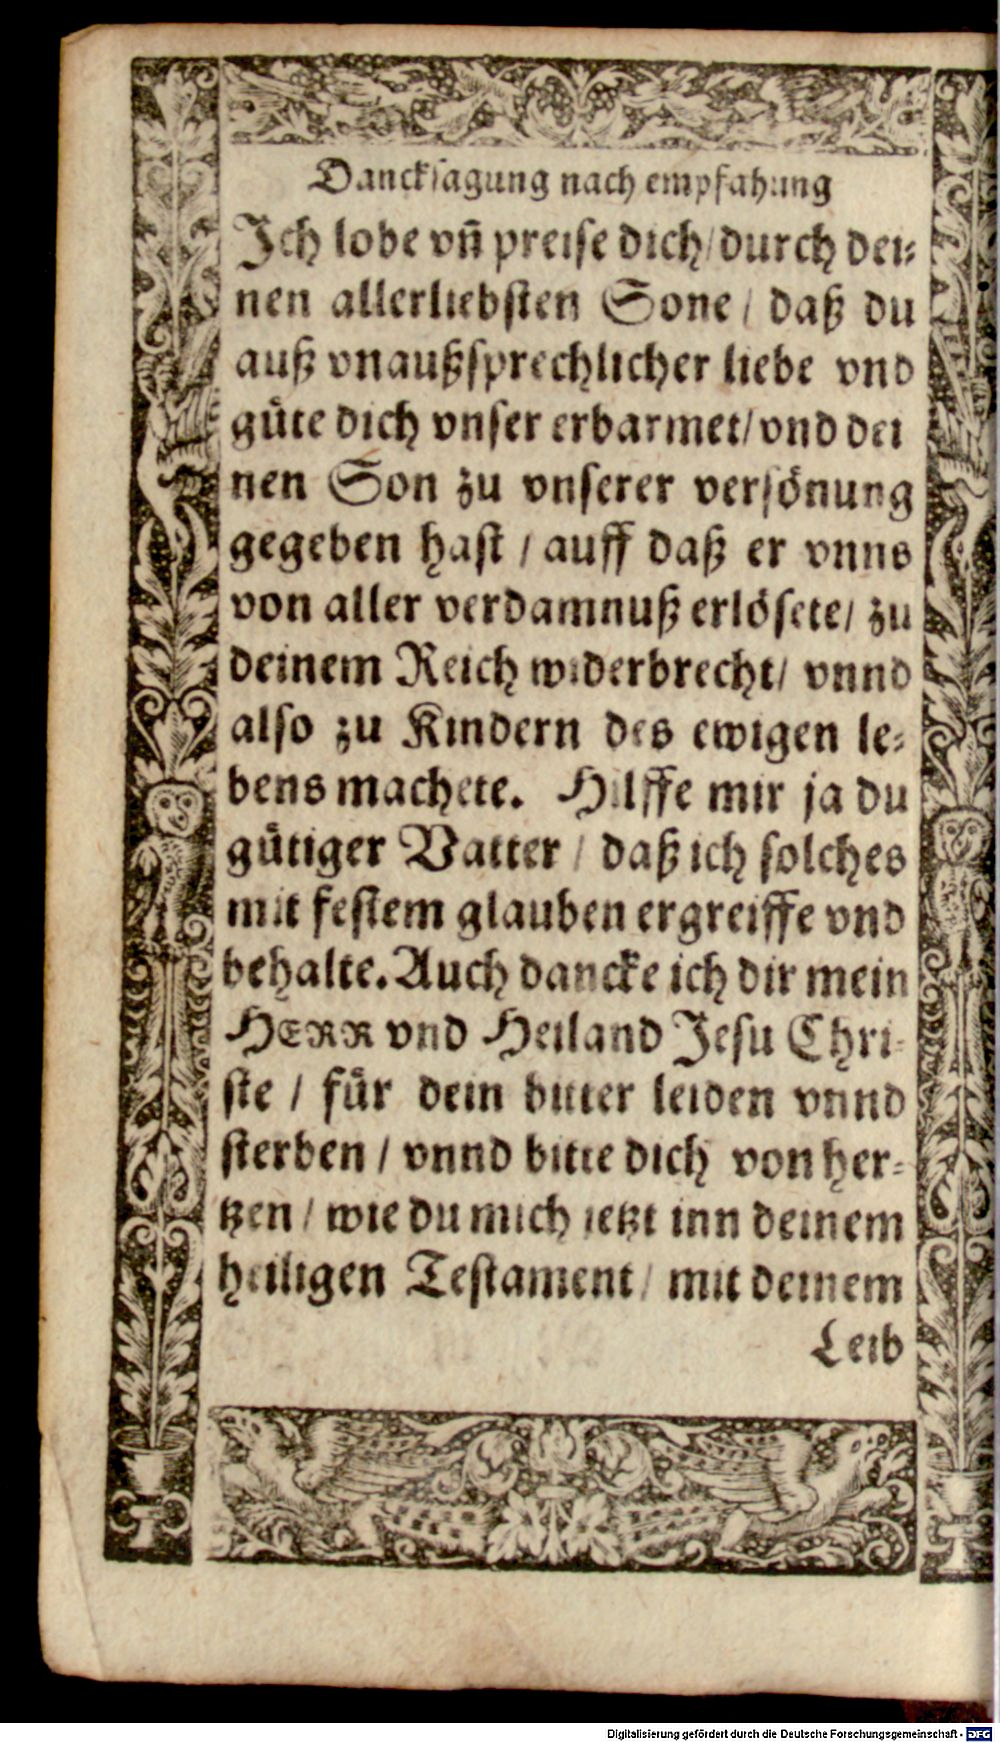 Dancksagung nach empfahung
Ich lobe vñ preise dich/ durch dei⸗
nen allerliebsten Sone / daß du
auß vnaußsprechlicher liebe vnd
gůte dich vnser erbarmet/ vnd dei
nen Son zu vnserer versönung
gegeben hast / auff daß er vnns
von aller verdamnuß erlösete/ zu
deinem Reich widerbrecht/ vnnd
also zu Kindern des ewigen le⸗
bens machete. Hilffe mir ja du
gütiger Vatter / daß ich solches
mit festem glauben ergreiffe vnd
behalte. Auch dancke ich dir mein
HERR vnd Heiland Jesu Chri⸗
ste / für dein bitter leiden vnnd
sterben / vnnd bitte dich von her⸗
tzen / wie du mich jetzt inn deinem
heiligen Testament/ mit deinem
Leib
Digitalisierung gefördert durch die Deutsche Forschungsgemeinschaft - DFG